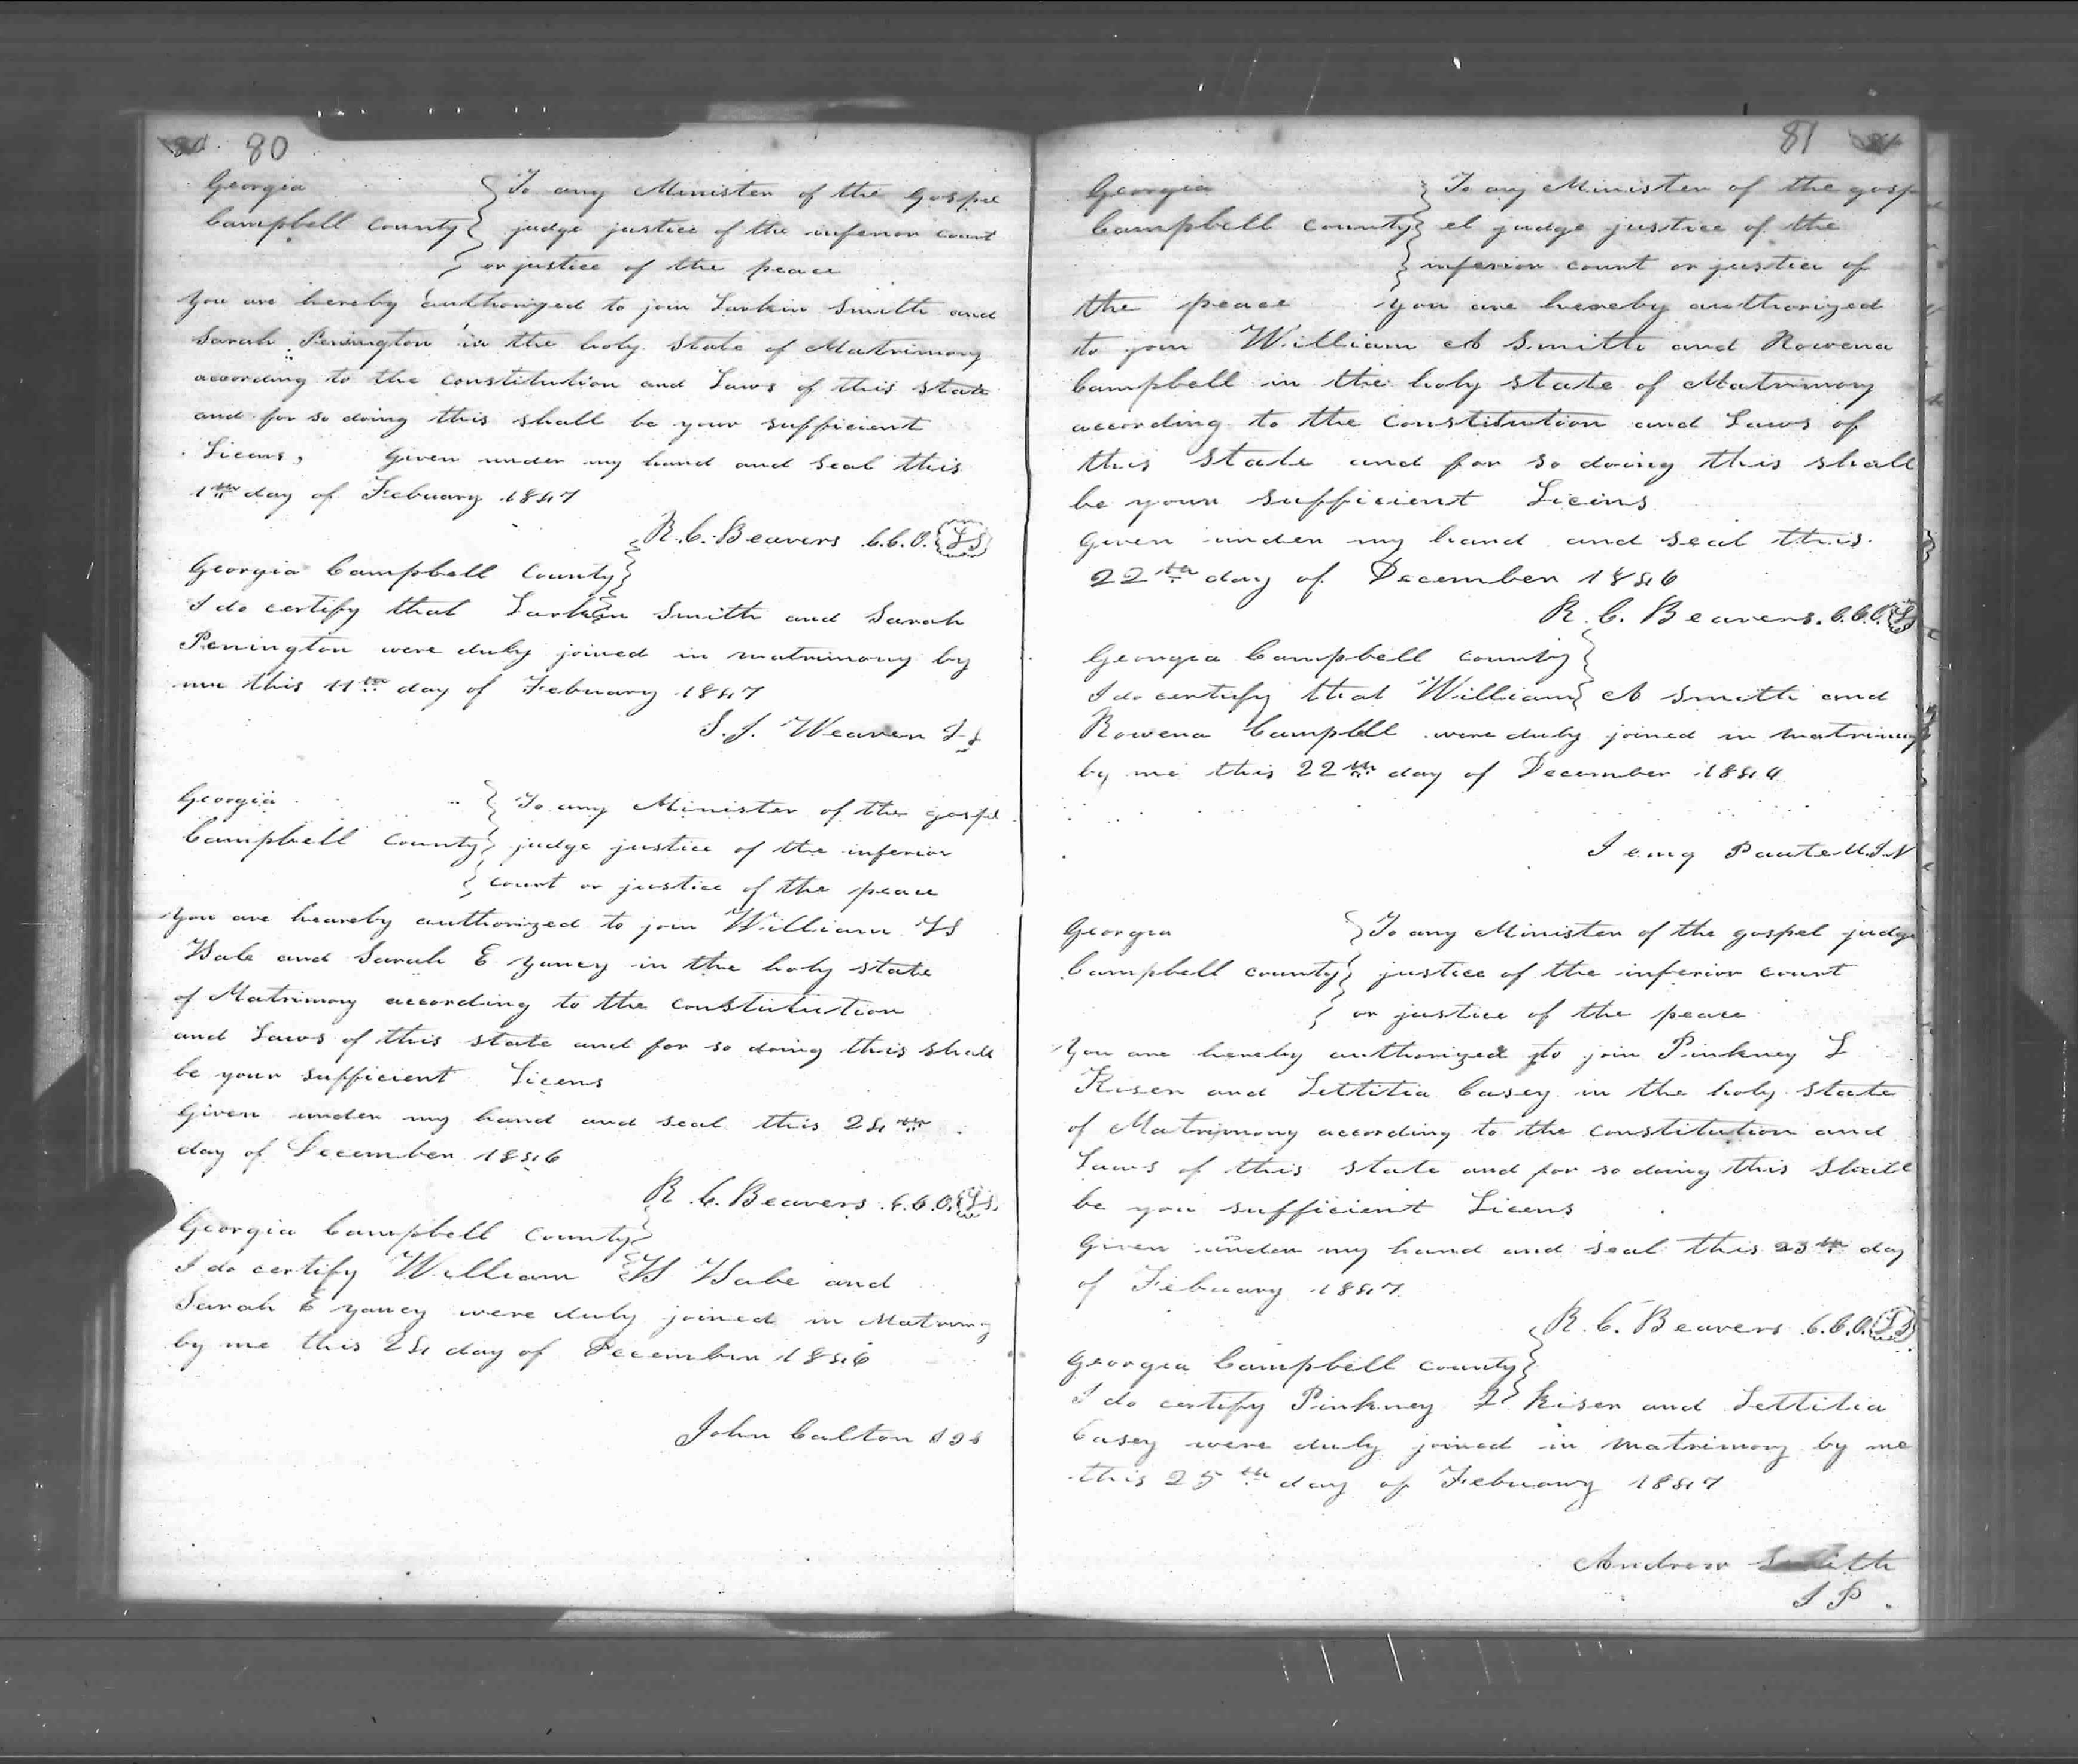 80 80
Georgia
Campbell County
To any Minister of the Gospel
judge justice of the inferior court
or justice of the peace
you are hereby authorized to join Larkin Smith and
Sarah Penington in the holy state of Matrimony
according to the constitution and Laws of this state
and for so doing this shall be your sufficient
Licens, Given under my hand and seal this
1th day of Febuary 1847
R. C. Beavers C.C.O. LS
Georgia Campbell County
I do certify that Larkin Smith and Sarah
Penington were duly joined in matrimony by
me this 11th day of Febuary 1847
Weaver
Georgia
Campbell County
To any Minister of the gospel
judge justice of the inferior
court or justice of the peace
you are heareby authorized to join William
and Sarah E Yancy in the holy state
of Matrimony according to the constitution
and Laws of this state and for so doing this shall
be your sufficient Licens
Given under my hand and seal this 24th
day of December 1846
R. C. Beavers C.C.O. LS
Georgia Campbell County
I do certify William and
Sarah E Yancy were duly joined in Matrimony
by me this 24 day of December 1846
John Calton
81 81
Georgia
Campbell County
To any Minister of the gosp
el judge justice of the
inferior court or justice of
the peace you are hereby authorized
to join William A Smith and Rowena
Campbell in the holy state of Matrimony
according to the Constitution and Laws of
this state and for so doing this shall
be your sufficient Licins
given under my hand and seal this
22th day of December 1846
R. C. Beavers. C.C.O. LS
Georgia Campbell County
I do certify that William A Smith and
Rowena Campbell were duly joined in matrimony
by me this 22th day of December 1844
Georgia
Campbell county
To any Minister of the gospel judge
justice of the inferior court
or justice of the peace
You are hereby authorized to join Pinkney L
Kiser and Lettitia Casey in the holy state
of Matrimony according to the constitution and
Laws of this state and for so doing this shall
be you sufficient Licens
Given under my hand and seal this 23th day
of Febuary 1847
R. C. Beavers C.C.O. LS
Georgia Campbell County
I do certify Pinkney L Kiser and Lettitia
Casey were duly joined in matrimony by me
this 25th day of Febuary 1847
Andrew Smith
J P.